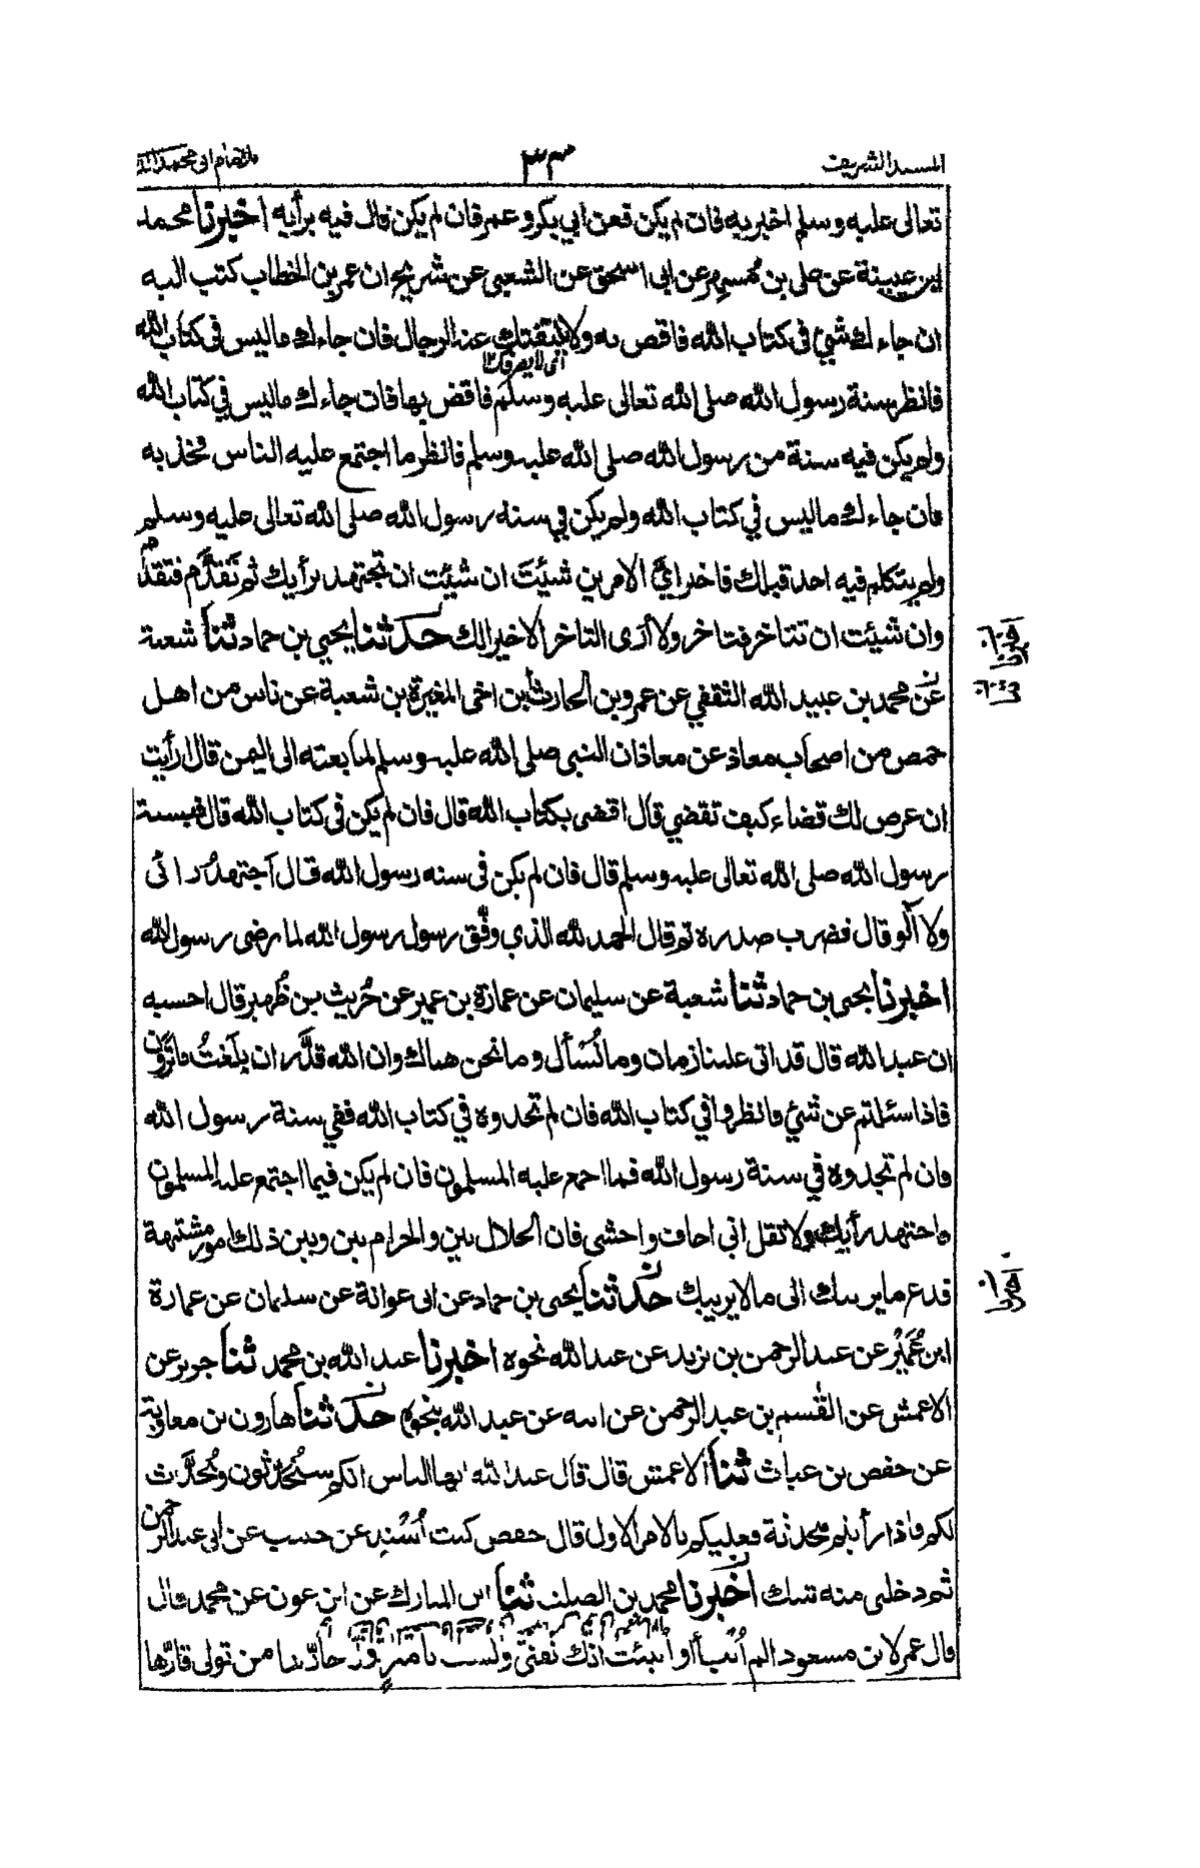 المسند الشريف ٣٣ للامام ابى محمد
تعالى عليه وسلم اخبر به فان لم يكن فعن ابي بكر وعمر فان لم يكن قال فيه برأيه اخبرنا محمد
ابن عيينة عن على بن مُسهِر عن ابى اسحٰق عن الشعبى عن شريح ان عمر بن الخطاب كتب اليه
ان جاءك شئ فى كتاب الله فاقض به ولا يلتفتك عنه الرجال فان جاءك ماليس فى كتاب الله
اى لا يصرفك١٢
فانظر سنة رسول الله صلى الله تعالى عليه وسلم فاقض بها فان جاءك ماليس في كتاب الله
ولم يكن فيه سنة من رسول الله صلى الله عليه وسلم فانظر ما اجتمع عليه الناس فخذ به
فان جاءك ماليس في كتاب الله ولم يكن في سنة رسول الله صلى الله تعالى عليه وسلم
ولم يتكلم فيه احد قبلك فاختر اىَّ الامرين شئتَ ان شئت ان تجتهد برأيك ثم تَقدَّم فتقدم
وان شئت ان تتاخر فتاخر ولا أرَى التاخر الا خيرا لك حدثنا يحيى بن حماد ثنا شعبة
عن محمد بن عبيد الله الثقفي عن عمرو بن الحارث بن اخى المغيرة بن شعبة عن ناس من اهل
حمص من اصحاب معاذ عن معاذ ان النبى صلى الله عليه وسلم لما بعثه الى اليمن قال أرأيت
ان عرض لك قضاء كيف تقضي قال اقضى بكتاب الله قال فان لم يكن فى كتاب الله قال فبسنة
رسول الله صلى الله تعالى عليه وسلم قال فان لم يكن فى سنة رسول الله قال أجتهدُ رائى
ولا آلو قال فضرب صدره ثم قال الحمد لله الذي وفَّق رسول رسول الله لما يرضى رسول الله
اخبرنا يحيى بن حماد ثنا شعبة عن سليمان عن عمارة بن عمير عن حُريث بن ظُهير قال احسبه
ان عبد الله قال قد اتى علينا زمان وما نُسْأل وما نحن هناك وان الله قدَّر ان بلَغتُ ماترون
فاذا سئلتم عن شئ فانظروا في كتاب الله فان لم تجدوه في كتاب الله ففي سنة رسول الله
فان لم تجدوه في سنة رسول الله فما اجمع عليه المسلمون فان لم يكن فيما اجتمع عليه المسلمون
فاجتهد برأيك ولا تقل انى اخاف واخشى فان الحلال بين والحرام بين وبين ذلك امور مشتبهة
فدع ما يريبك الى مالا يريبك حدثنا يحيى بن حماد عن ابى عوانة عن سليمان عن عمارة
ابن عُمَيْر عن عبد الرحمن بن يزيد عن عبد الله نحوه اخبرنا عبد الله بن محمد ثنا جرير عن
الاعمش عن القٰسم بن عبد الرحمن عن ابيه عن عبد الله بنحوه حدثنا هارون بن معاوية
عن حفص بن غياث ثنا الاعمش قال قال عبد الله ايها الناس انكم ستُحدِثون ويُحدَّث
لكم فاذا رأيتم محدثة فعليكم بالامر الاول قال حفص كنت اُسْنِد عن حبيب عن ابى عبد الرحمن
ثم دخلنى منه شك اخبرنا محمد بن الصلت ثنا ابن المبارك عن ابن عون عن محمد قال
قال عمر لابن مسعود الم اُنبَأ او انبئت انك تُفتى ولست بامير وَلِّ حارّها من تولى قارّها
اخبرنا
اخبرنا